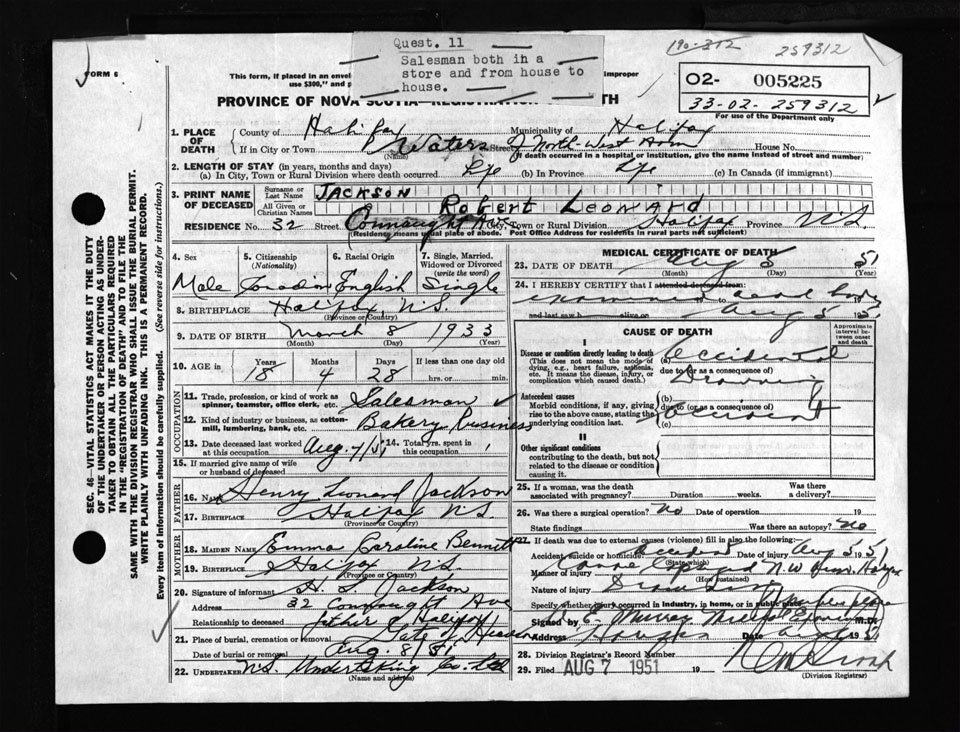 Quest. 11
Salesman both in a
store and from house to
house.
259312
FORM 6
This form, if placed in an envel improper
use $300," and p
02- 005225
33-02-259312
For use of the Department only
PROVINCE OF NOVA SCOTIA REGISTRATION TH
1. PLACE OF DEATH County of Halifax Municipality of Halifax
If in City or Town Waters Street of North West Arm House No.
(Name) (If death occurred in a hospital or institution, give the name instead of street and number)
2. LENGTH OF STAY (in years, months and days)
(a) In City, Town or Rural Division where death occurred. Life (b) In Province Life (c) In Canada (if immigrant)
3. PRINT NAME OF DECEASED Surname or Last Name JACKSON
All Given or Christian Names Robert Leonard
RESIDENCE No. 32 Street Connaught Ave City, Town or Rural Division Halifax Province N.S.
(Residence means usual place of abode. Post Office Address for residents in rural parts not sufficient)
4. Sex 5. Citizenship (Nationality) 6. Racial Origin 7. Single, Married, Widowed or Divorced (write the word)
Male Canadian English Single
8. BIRTHPLACE Halifax N.S.
(Province or Country)
9. DATE OF BIRTH March 8 1933
(Month) (Day) (Year)
10. AGE in Years Months Days If less than one day old
18 4 28 hrs. or min.
OCCUPATION
11. Trade, profession, or kind of work as spinner, teamster, office clerk, etc. Salesman
12. Kind of industry or business, as cotton-mill, lumbering, bank, etc. Bakery Business
13. Date deceased last worked at this occupation Aug. 4/51 14. Total yrs. spent in this occupation 1
15. If married give name of wife or husband of deceased
FATHER
16. Name Henry Leonard Jackson
17. BIRTHPLACE Halifax N.S.
(Province or Country)
MOTHER
18. MAIDEN NAME Emma Caroline Bennett
19. BIRTHPLACE Halifax N.S.
(Province or Country)
20. Signature of informant H. L. Jackson
Address 32 Connaught Ave
Relationship to deceased father Halifax
21. Place of burial, cremation or removal Gate of Heaven
Date of burial or removal Aug. 8/51
22. UNDERTAKER N.S. Undertaking Co. Ltd
(Name and address)
MEDICAL CERTIFICATE OF DEATH
23. DATE OF DEATH Aug 5 51
(Month) (Day) (Year)
24. I HEREBY CERTIFY that I attended deceased from
examined to dead body
and last saw h alive on Aug 5 1951
CAUSE OF DEATH Approximate interval between onset and death
I
Disease or condition directly leading to death (This does not mean the mode of dying, e.g., heart failure, asthenia, etc. It means the disease, injury, or complication which caused death.)
(a) Accidental
due to (or as a consequence of)
Drowning
Antecedent causes
Morbid conditions, if any, giving rise to the above cause, stating the underlying condition last.
(b)
due to (or as a consequence of)
accident
(c)
II
Other significant conditions
contributing to the death, but not related to the disease or condition causing it.
25. If a woman, was the death associated with pregnancy? Duration weeks. Was there a delivery?
26. Was there a surgical operation? No Date of operation 19
State findings Was there an autopsy? No
27. If death was due to external causes (violence) fill in also the following:
Accident, suicide or homicide? Accident Date of injury Aug 5 1951
(State which)
Manner of injury Canoe Capsized N.W Arm. Halifax
(How sustained)
Nature of injury Drowning
Specify whether injury occurred in industry, in home, or in public place
28. Signed by Murray M.D.
Address Halifax Date Aug 1951
Division Registrar's Record Number
29. Filed AUG 7 1951 29
(Division Registrar)
SEC. 46—VITAL STATISTICS ACT MAKES IT THE DUTY
OF THE UNDERTAKER OR PERSON ACTING AS UNDER-
TAKER TO OBTAIN ALL THE PARTICULARS REQUIRED
IN THE "REGISTRATION OF DEATH" AND TO FILE THE
SAME WITH THE DIVISION REGISTRAR WHO SHALL ISSUE THE BURIAL PERMIT.
WRITE PLAINLY WITH UNFADING INK. THIS IS A PERMANENT RECORD.
Every item of information should be carefully supplied. (See reverse side for instructions.)